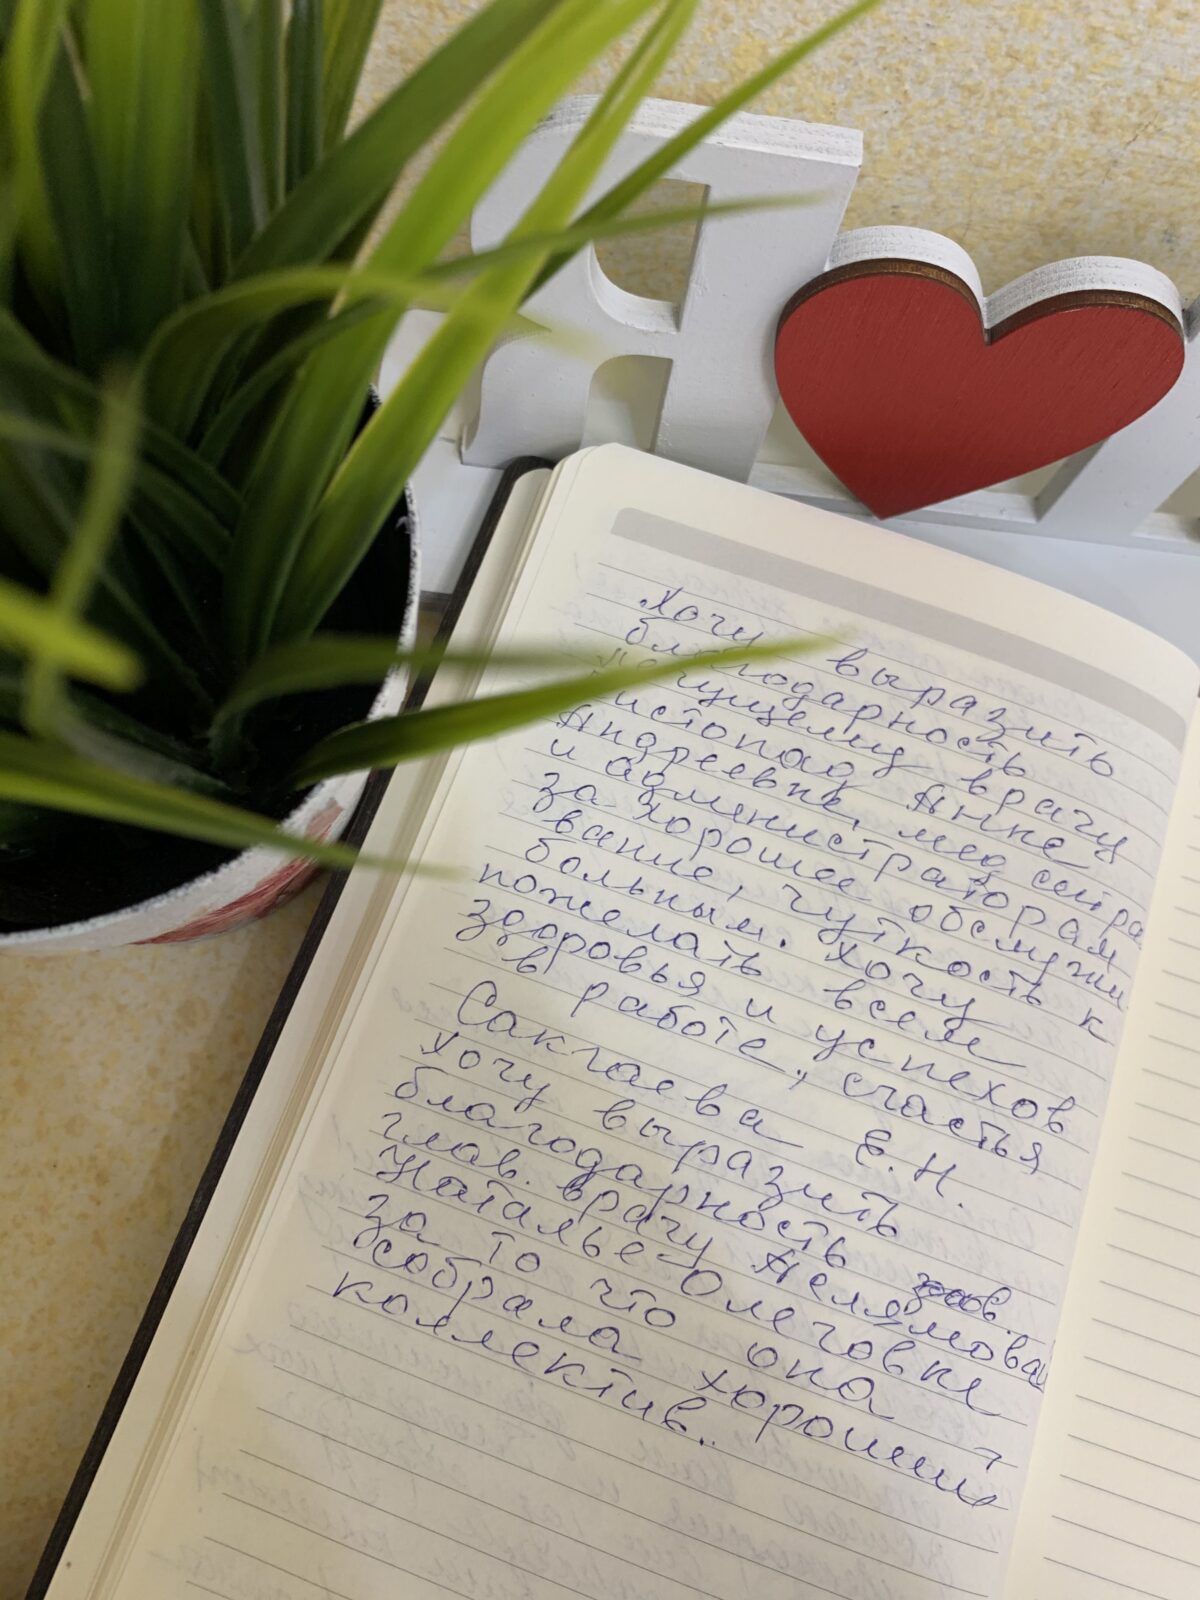 Я
Хочу выразить
благодарность
лечущему врачу
Листопад Анне
Андреевне, мед сестра
и администраторам
за хорошее обслужи
вание, чуткость к
больным. Хочу
пожелать всем
здоровья и успехов
в работе, счастья
Е.Н.
Хочу выразить
благодарность зав.
глав. врачу
Наталье Олеговне
за то что она
собрала хороший
коллектив.